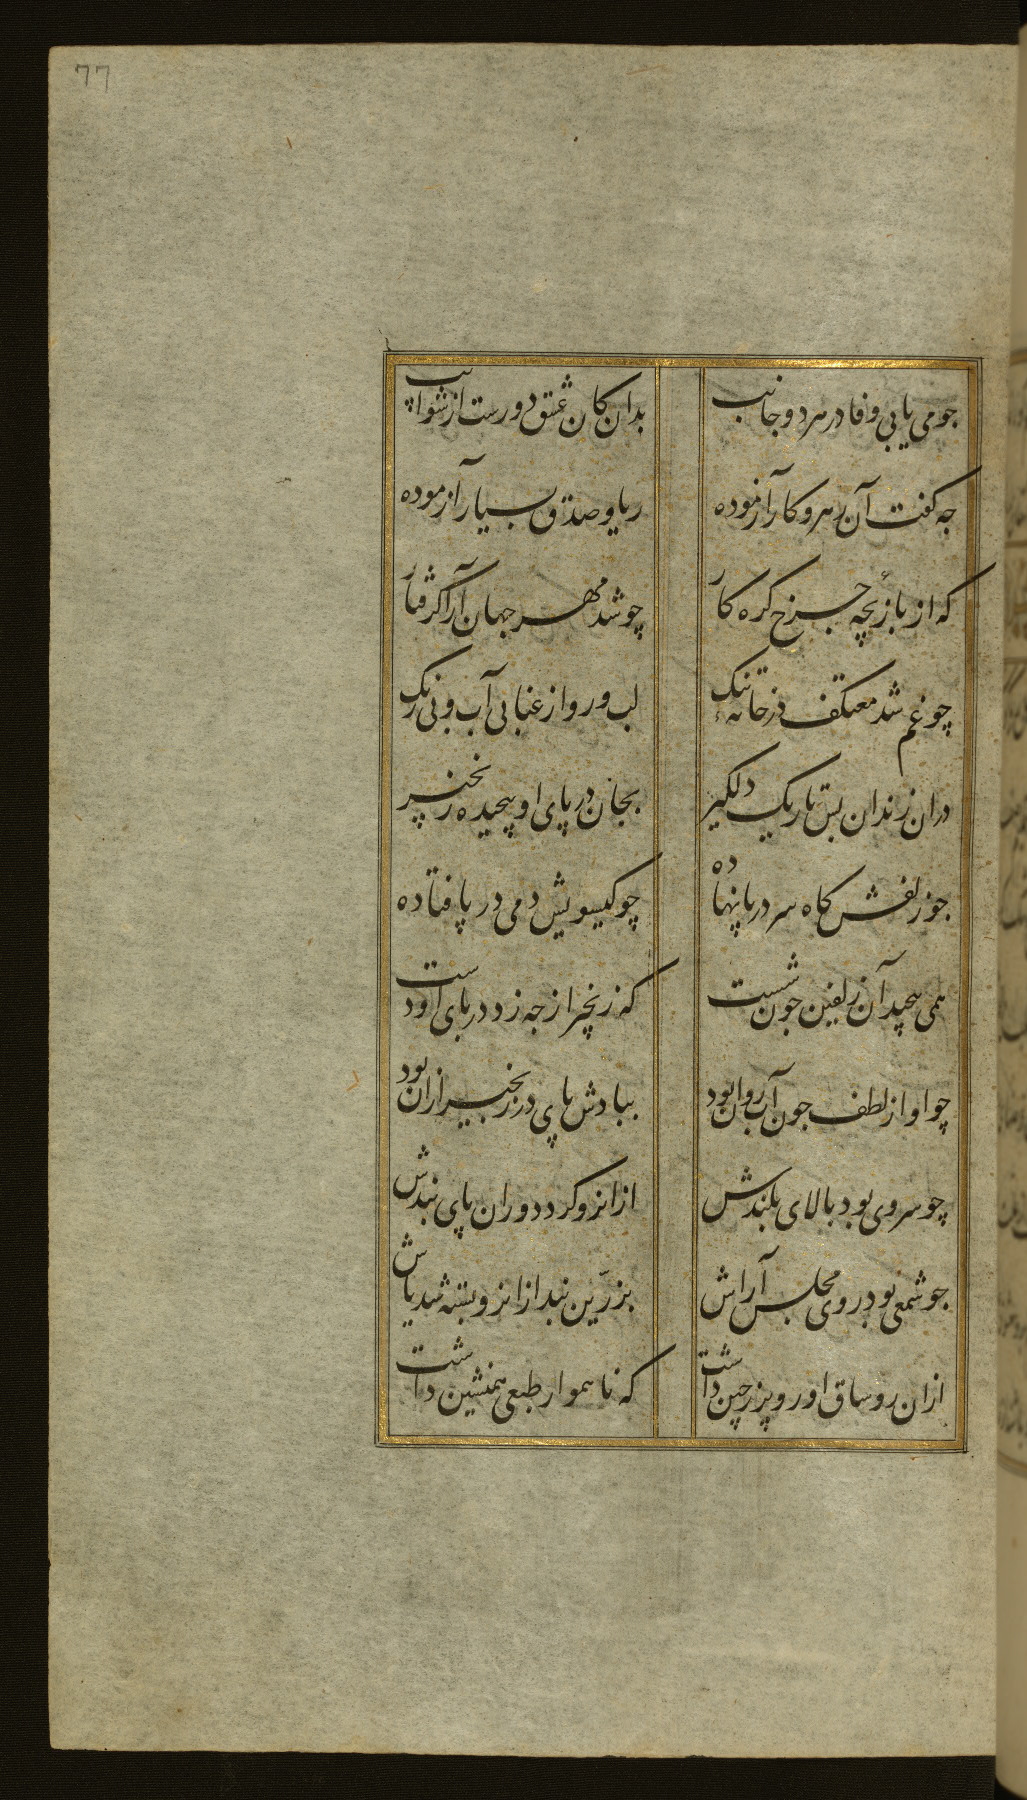 77
چو می یابی وفا در هر دو جانب
بدان کان عشق دورست از شوایب
چه گفت آن رهرو کار آزموده
ریا و صدق بسیار آزموده
که از بازیچه چرخ کره کار
چو شد مهر جهان آرا گرفتار
چو غم شد معتکف در خانه تنک
لب و رو از عنابی آب و بی رنک
دران زندان بس تاریک دلکیر
بجان در پای او پیچیده زنجیر
چو زلفش کاه سر در پا نهاده
چو کیسویش دمی در پا فتاده
همی پیچید آن زلفین چون شست
که زنجیر از چه زد در پای او دست
چو او از لطف چون آب روان بود
ببادش پای در زنجیر ازان بود
چو سروی بود بالای بلندش
ازانرو کرد دوران پای بندش
چو شمعی بود روی مجلس آراش
بزرّین بند ازانرو بسته شد پاش
ازان رو ساق او رو پر ز چین داشت
که ناهموار طبعی همنشین داشت